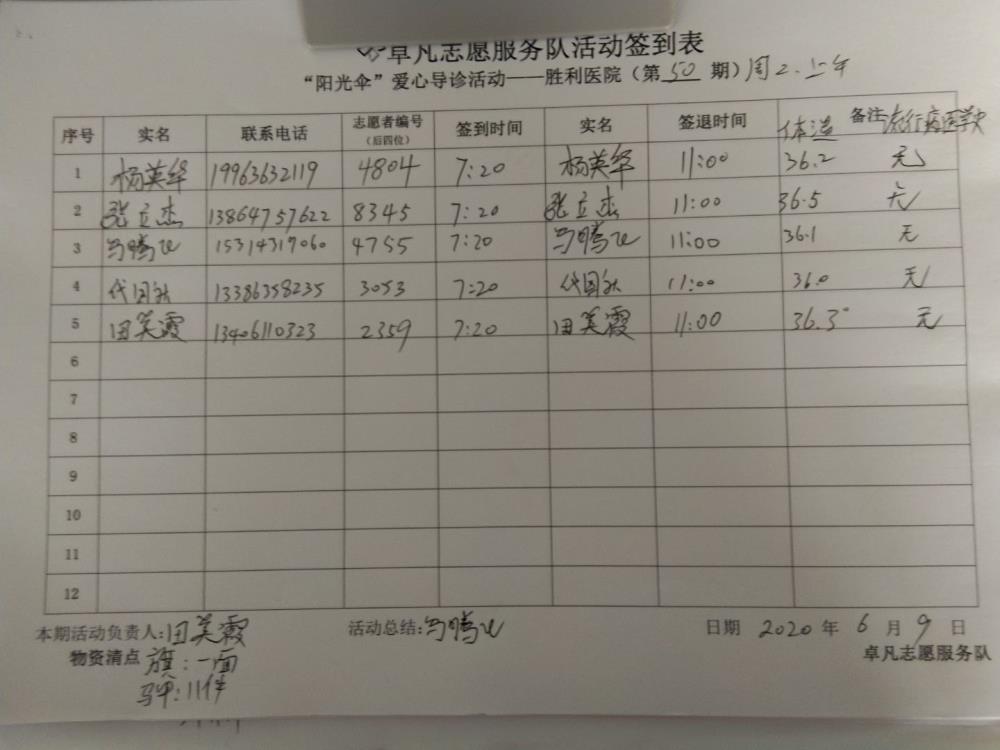 卓凡志愿服务队活动签到表
“阳光伞”爱心导诊活动——胜利医院（第 50 期）周2.上午
序号 实名 联系电话 志愿者编号（后四位） 签到时间 实名 签退时间 体温 备注 流行病医学史
1 杨英华 19963632119 4804 7:20 杨英华 11:00 36.2 无
2 张立杰 13864757622 8345 7:20 张立杰 11:00 36.5 无
3 马腾飞 15314317060 4755 7:20 马腾飞 11:00 36.1 无
4 代国秋 13386358235 3053 7:20 代国秋 11:00 36.0 无
5 田美霞 13406110323 2359 7:20 田美霞 11:00 36.3° 无
6
7
8
9
10
11
12
本期活动负责人:田美霞 活动总结:马腾飞 日期 2020 年 6 月 9 日
物资清点 旗:一面 卓凡志愿服务队
:11件